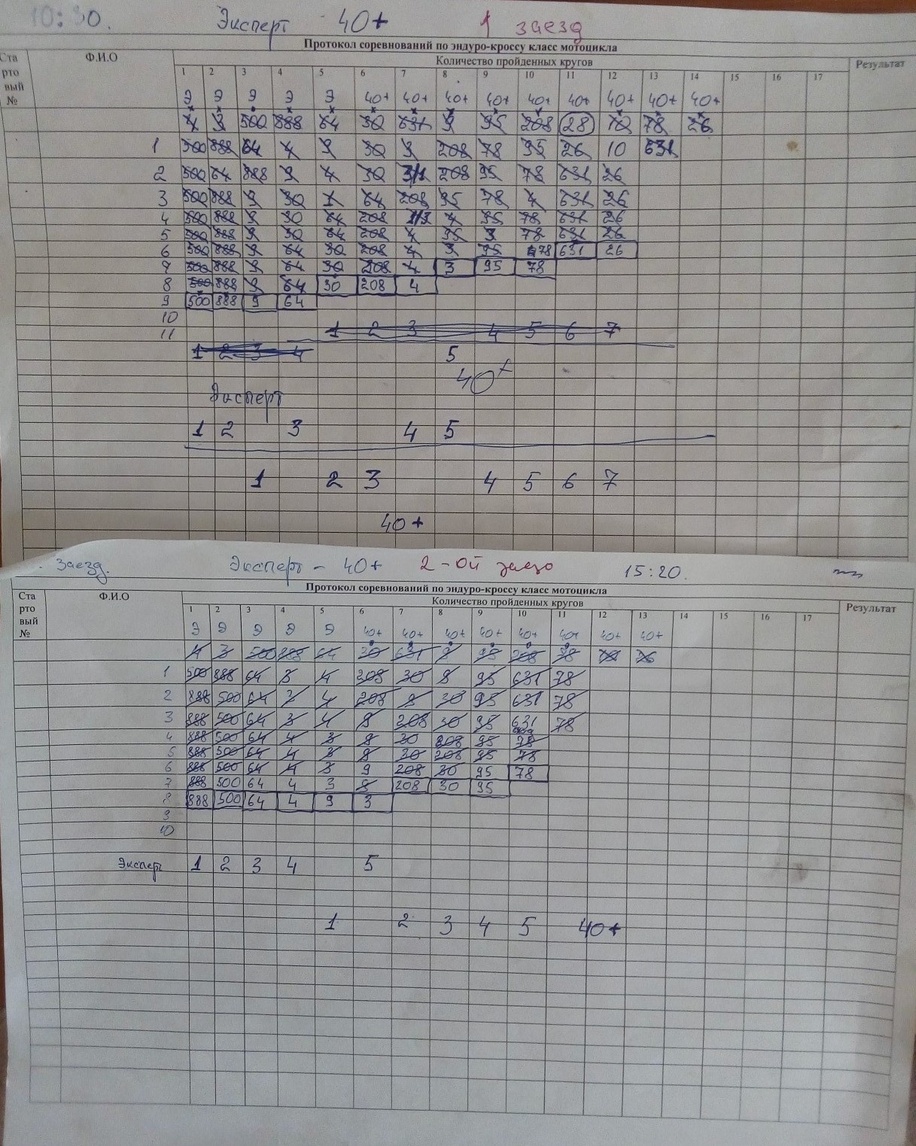 10:30. Эксперт 40+ 1 заезд
Протокол соревнований по эндуро-кроссу класс мотоцикла
Стартовый № Ф.И.О Количество пройденных кругов Результат
1 2 3 4 5 6 7 8 9 10 11 12 13 14 15 16 17
Э Э Э Э Э 40+ 40+ 40+ 40+ 40+ 40+ 40+ 40+ 40+
4 3 500 888 64 30 631 9 95 208 28 10 78 26
1 500 888 64 4 9 30 3 208 78 95 26 10 631
2 500 64 888 9 4 30 208 95 78 631 26
3 500 888 9 30 64 208 95 78 4 631 26
4 500 888 9 30 64 208 4 95 78 631 26
5 500 888 9 30 64 208 4 95 3 78 631 26
6 500 888 9 64 30 208 4 3 95 78 631 26
7 500 888 9 64 30 208 4 3 95 78
8 500 888 9 64 30 208 4
9 500 888 9 64
10
11 1 2 3 4 5 6 7
1 2 3 4 5
40+
Эксперт
1 2 3 4 5
1 2 3 4 5 6 7
40+
заезд. Эксперт - 40+ 2-ой заезд 15:20.
Протокол соревнований по эндуро-кроссу класс мотоцикла
Стартовый № Ф.И.О Количество пройденных кругов Результат
1 2 3 4 5 6 7 8 9 10 11 12 13 14 15 16 17
Э Э Э Э Э 40+ 40+ 40+ 40+ 40+ 40+ 40+ 40+
4 3 500 888 64 30 631 9 95 208 78 10 26
1 500 888 64 3 4 208 30 9 95 631 78
2 888 500 64 3 4 208 9 30 95 631 78
3 888 500 64 3 4 9 208 30 95 631 78
4 888 500 64 4 3 9 30 208 95 78
5 888 500 64 4 3 9 30 208 95 78
6 888 500 64 4 3 9 208 30 95 78
7 888 500 64 4 3 9 208 30 95
8 888 500 64 4 9 3
9
10
Эксперт 1 2 3 4 5
1 2 3 4 5 40+